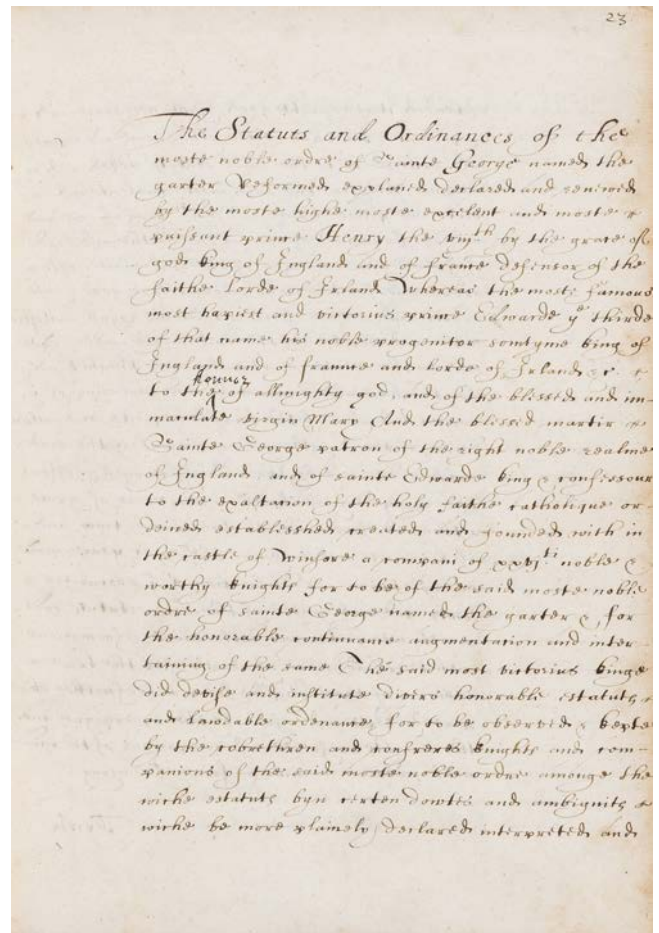 23
The Statuts and Ordinances of the
moste noble ordre of Sainte George named the
garter Reformed explaned declared and renewed
by the moste highe moste excelent and moste &
puissant prince Henry the viijth by the grace of
god king of Ingland and of france defensor of the
faithe Lorde of Irland Whereas the moste famous
most hapiest and victorius prince Edwarde ye thirde
of that name his noble progenitor somtyme king of
Ingland and of fraunce and lorde of Irland &c. &
to the honner of allmighty god, and of the blessed and im-
maculate virgin Mary And the blessed martir &
Sainte George patron of the right noble realme
of Ingland, and of sainte Edwarde king & confessour
to the exaltacion of the holy faithe catholique or-
deined establesshed created and founded with in
the castle of Winsore a compani of xxvjti noble &
worthy knights for to be of the said moste noble
ordre of sainte George named the garter &, for
the honorable continuance augmentacion and inter
taining of the same The said most victorius kinge
did devise and institute divers honorable estatuts &
and Lawdable ordenance, for to be observed & kepte
by the cobrethren and confreres knights and com-
panions of the said moste noble ordre amonge the
wiche estatuts byn certen dowtes and ambiguits &
wiche be more plainely declared interpreted and